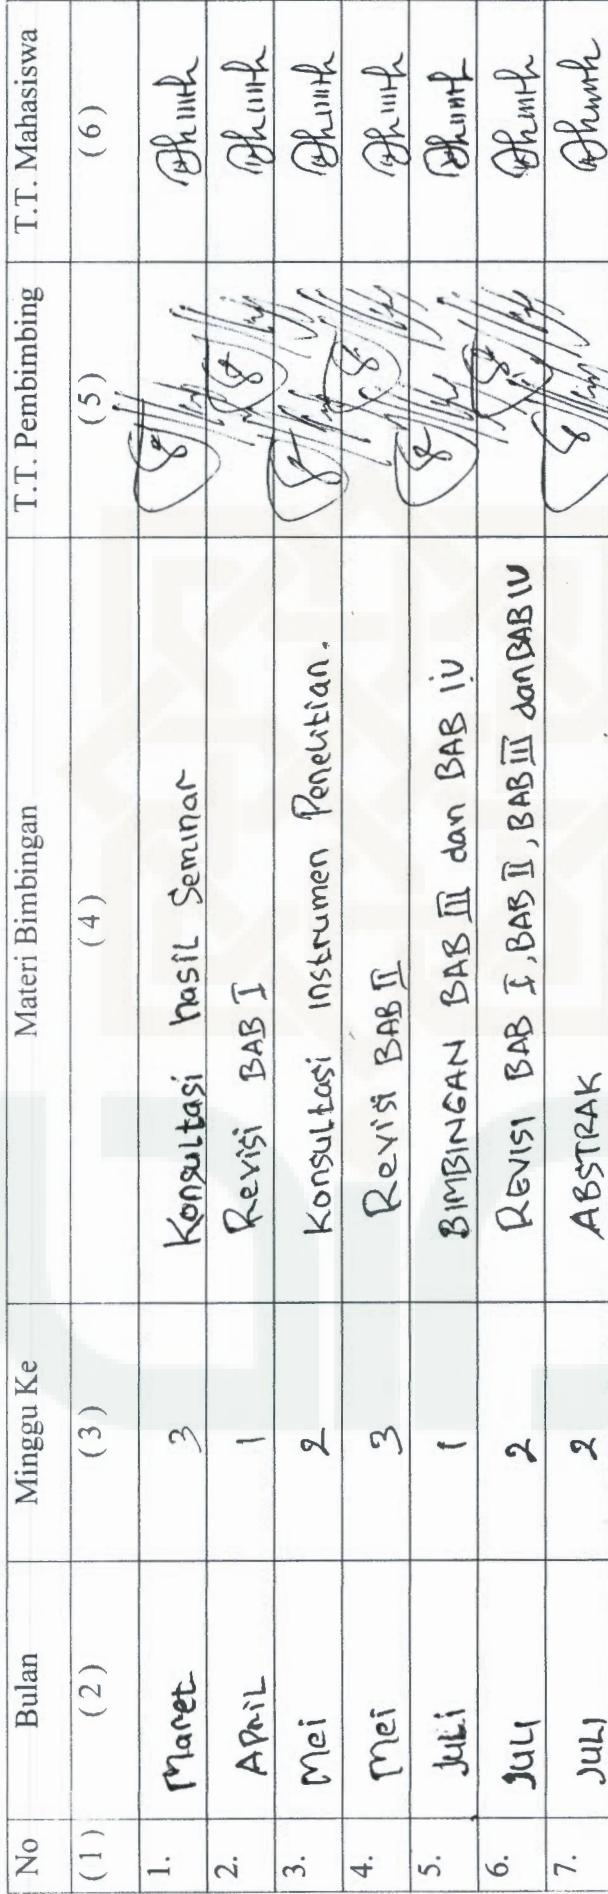 No Bulan Minggu Ke Materi Bimbingan T.T. Pembimbing T.T. Mahasiswa
(1) (2) (3) (4) (5) (6)
1. Maret 3 Konsultasi hasil Seminar
2. APRIL 1 Revisi BAB I
3. Mei 2 Konsultasi instrumen Penelitian.
4. Mei 3 Revisi BAB II
5. JULI 1 BIMBINGAN BAB III dan BAB IV
6. JULI 2 REVISI BAB I, BAB II, BAB III dan BAB IV
7. JULI 2 ABSTRAK